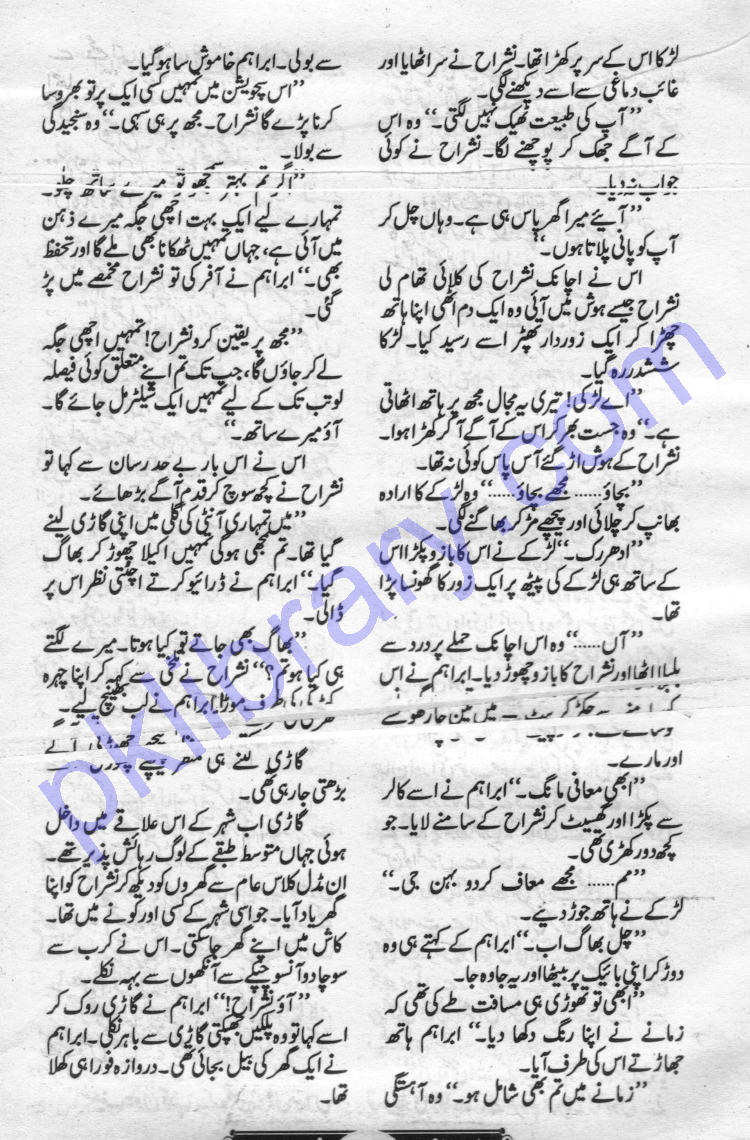 لڑکا اس کے سر پر کھڑا تھا۔ نشراح نے سر اٹھایا اور
غائب دماغی سے اسے دیکھنے لگی۔
’’آپ کی طبیعت ٹھیک نہیں لگتی۔‘‘ وہ اس
کے آگے جھک کر پوچھنے لگا۔ نشراح نے کوئی
جواب نہ دیا۔
’’آیئے میرا گھر پاس ہی ہے۔ وہاں چل کر
آپ کو پانی پلاتا ہوں۔‘‘
اس نے اچانک نشراح کی کلائی تھام لی
نشراح جیسے ہوش میں آئی وہ ایک دم اٹھی اپنا ہاتھ
چھڑا کر ایک زوردار تھپڑ اسے رسید کیا۔ لڑکا
ششدر رہ گیا۔
’’اے لڑکی! تیری یہ مجال مجھ پر ہاتھ اٹھاتی
ہے۔‘‘ وہ جست بھر کر اس کے آگے آ کر کھڑا ہوا۔
نشراح کے ہوش اڑ گئے آس پاس کوئی نہ تھا۔
’’بچاؤ...... مجھے بچاؤ......‘‘ وہ لڑکے کا ارادہ
بھانپ کر چلائی اور پیچھے مڑ کر بھاگنے لگی۔
’’ادھر رک۔‘‘ لڑکے نے اس کا بازو پکڑا اس
کے ساتھ ہی لڑکے کی پیٹھ پر ایک زور کا گھونسا پڑا
تھا۔
’’آں......‘‘ وہ اس اچانک حملے پر درد سے
بلبلا اٹھا اور نشراح کا بازو چھوڑ دیا۔ ابراہم نے اس
اور مارے۔
’’ابھی معافی مانگ۔‘‘ ابراہم نے اسے کالر
سے پکڑا اور گھسیٹ کر نشراح کے سامنے لایا۔ جو
کچھ دور کھڑی تھی۔
’’مم...... مجھے معاف کردو بہن جی۔‘‘
لڑکے نے ہاتھ جوڑ دیئے۔
’’چل بھاگ اب۔‘‘ ابراہم کے کہتے ہی وہ
دوڑ کر اپنی بائیک پر بیٹھا اور یہ جا وہ جا۔
’’ابھی تو تھوڑی ہی مسافت طے کی تھی کہ
زمانے نے اپنا رنگ دکھا دیا۔‘‘ ابراہم ہاتھ
جھاڑتے اس کی طرف آیا۔
’’زمانے میں تم بھی شامل ہو۔‘‘ وہ آہستگی
سے بولی۔ ابراہم خاموش سا ہو گیا۔
’’اس سچویشن میں تمہیں کسی ایک پر تو بھروسا
کرنا پڑے گا نشراح۔ مجھ پر ہی سہی۔‘‘ وہ سنجیدگی
سے بولا۔
’’اگر تم بہتر سمجھو تو میرے ساتھ چلو۔
تمہارے لیے ایک بہت اچھی جگہ میرے ذہن
میں آئی ہے، جہاں تمہیں ٹھکانا بھی ملے گا اور تحفظ
بھی۔‘‘ ابراہم نے آفر کی تو نشراح مخمصے میں پڑ
گئی۔
’’مجھ پر یقین کرو نشراح! تمہیں اچھی جگہ
لے کر جاؤں گا، جب تک تم اپنے متعلق کوئی فیصلہ
لو تب تک کے لیے تمہیں ایک شیلٹر مل جائے گا۔
آؤ میرے ساتھ۔‘‘
اس نے اس بار بے حد رسان سے کہا تو
نشراح نے کچھ سوچ کر قدم آگے بڑھائے۔
’’میں تمہاری آنٹی کی گلی میں اپنی گاڑی لینے
گیا تھا۔ تم سمجھی ہوگی تمہیں اکیلا چھوڑ کر بھاگ
گیا۔‘‘ ابراہم نے ڈرائیو کرتے اچٹتی نظر اس پر
ڈالی۔
’’بھاگ بھی جاتے تو کیا ہوتا۔ میرے لگتے
ہی کیا ہو تم؟‘‘ نشراح نے تلخی سے کہہ کر اپنا چہرہ
کھڑکی کی طرف موڑا۔ ابراہم نے لب بھینچ لیے۔
گاڑی کتنے ہی منظر پیچھے چھوڑتی آگے
بڑھتی جا رہی تھی۔
گاڑی اب شہر کے اس علاقے میں داخل
ہوئی جہاں متوسط طبقے کے لوگ رہائش پذیر تھے۔
ان مڈل کلاس عام سے گھروں کو دیکھ کر نشراح کو اپنا
گھر یاد آیا۔ جو اسی شہر کے کسی اور کونے میں تھا۔
کاش میں اپنے گھر جا سکتی۔ اس نے کرب سے
سوچا دو آنسو چپکے سے آنکھوں سے بہہ نکلے۔
’’آؤ نشراح!‘‘ ابراہم نے گاڑی روک کر
اسے کہا تو وہ پلکیں جھپکتی گاڑی سے باہر نکلی۔ ابراہم
نے ایک گھر کی بیل بجائی تھی۔ دروازہ فوراً ہی کھلا
تھا۔
pklibrary.com